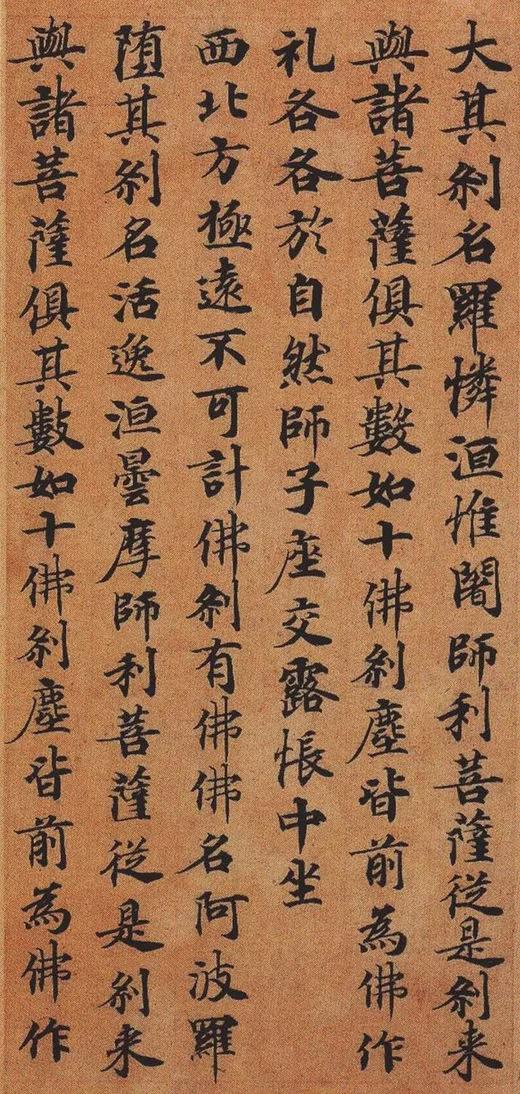 大其刹名羅憐洹惟闍師利菩薩從是刹来
與諸菩薩俱其數如十佛刹塵皆前為佛作
礼各各於自然師子座交露帳中坐
西北方極遠不可計佛刹有佛佛名阿波羅
堕其刹名活逸洹曇摩師利菩薩從是刹来
與諸菩薩俱其數如十佛刹塵皆前為佛作